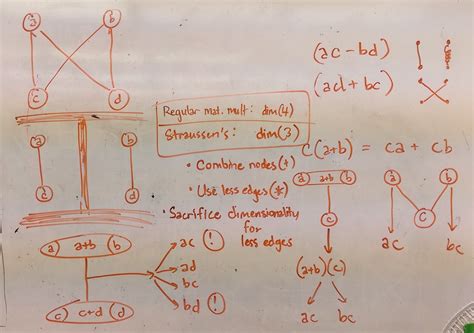 a b
c d
(ac - bd)
(ad + bc)
Regular mat. mult: dim(4)
Straussen's: dim(3)
a b
c d
• Combine nodes (+)
• Use less edges (*)
• Sacrifice dimensionality
for
less edges
C(a+b) = ca + cb
a a+b b
c
(a+b)(c)
ac bc
a b
C
ac bc
a) a+b (b)
c) c+d (d)
ac (!)
ad
bc
bd (!)